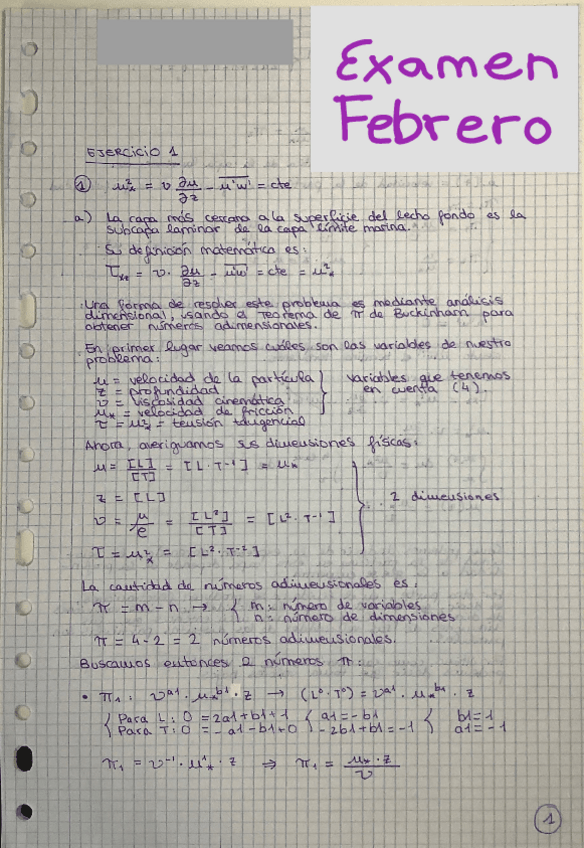 Examen
Febrero
EJERCICIO 1
① u²* = ν ∂u/∂z - u'w' = cte
a) La capa más cercana a la superficie del lecho fondo es la
subcapa laminar de la capa límite marina.
Su definición matemática es:
τ* = ν · ∂u/∂z - u'w' = cte = u²*
Una forma de resolver este problema es mediante análisis
dimensional, usando el Teorema de π de Buckinham para
obtener números adimensionales.
En primer lugar veamos cuáles son las variables de nuestro
problema:
u = velocidad de la partícula
z = profundidad
ν = viscosidad cinemática
u* = velocidad de fricción
τ = u²* = tensión tangencial
variables que tenemos
en cuenta (4).
Ahora, averiguamos sus dimensiones físicas:
u = [L]/[T] = [L · T⁻¹] = u*
z = [L]
ν = μ/ρ = [L²]/[T] = [L² · T⁻¹]
τ = u²* = [L² · T⁻²]
2 dimensiones
La cantidad de números adimensionales es:
π = m - n → { m = número de variables
n = número de dimensiones
π = 4 - 2 = 2 números adimensionales.
Buscamos entonces 2 números π:
• π₁ : ν^a1 · u*^b1 · z → (L⁰ · T⁰) = ν^a1 · u*^b1 · z
{ Para L: 0 = 2a1 + b1 + 1 { a1 = -b1 { b1 = 1
Para T: 0 = -a1 - b1 + 0 -2b1 + b1 = -1 a1 = -1
π₁ = ν⁻¹ · u¹* · z ⇒ π₁ = u* · z / ν
1